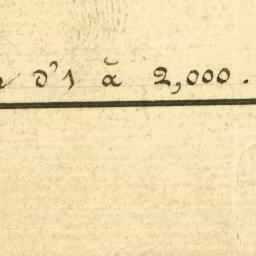 d'1 à 2,000.